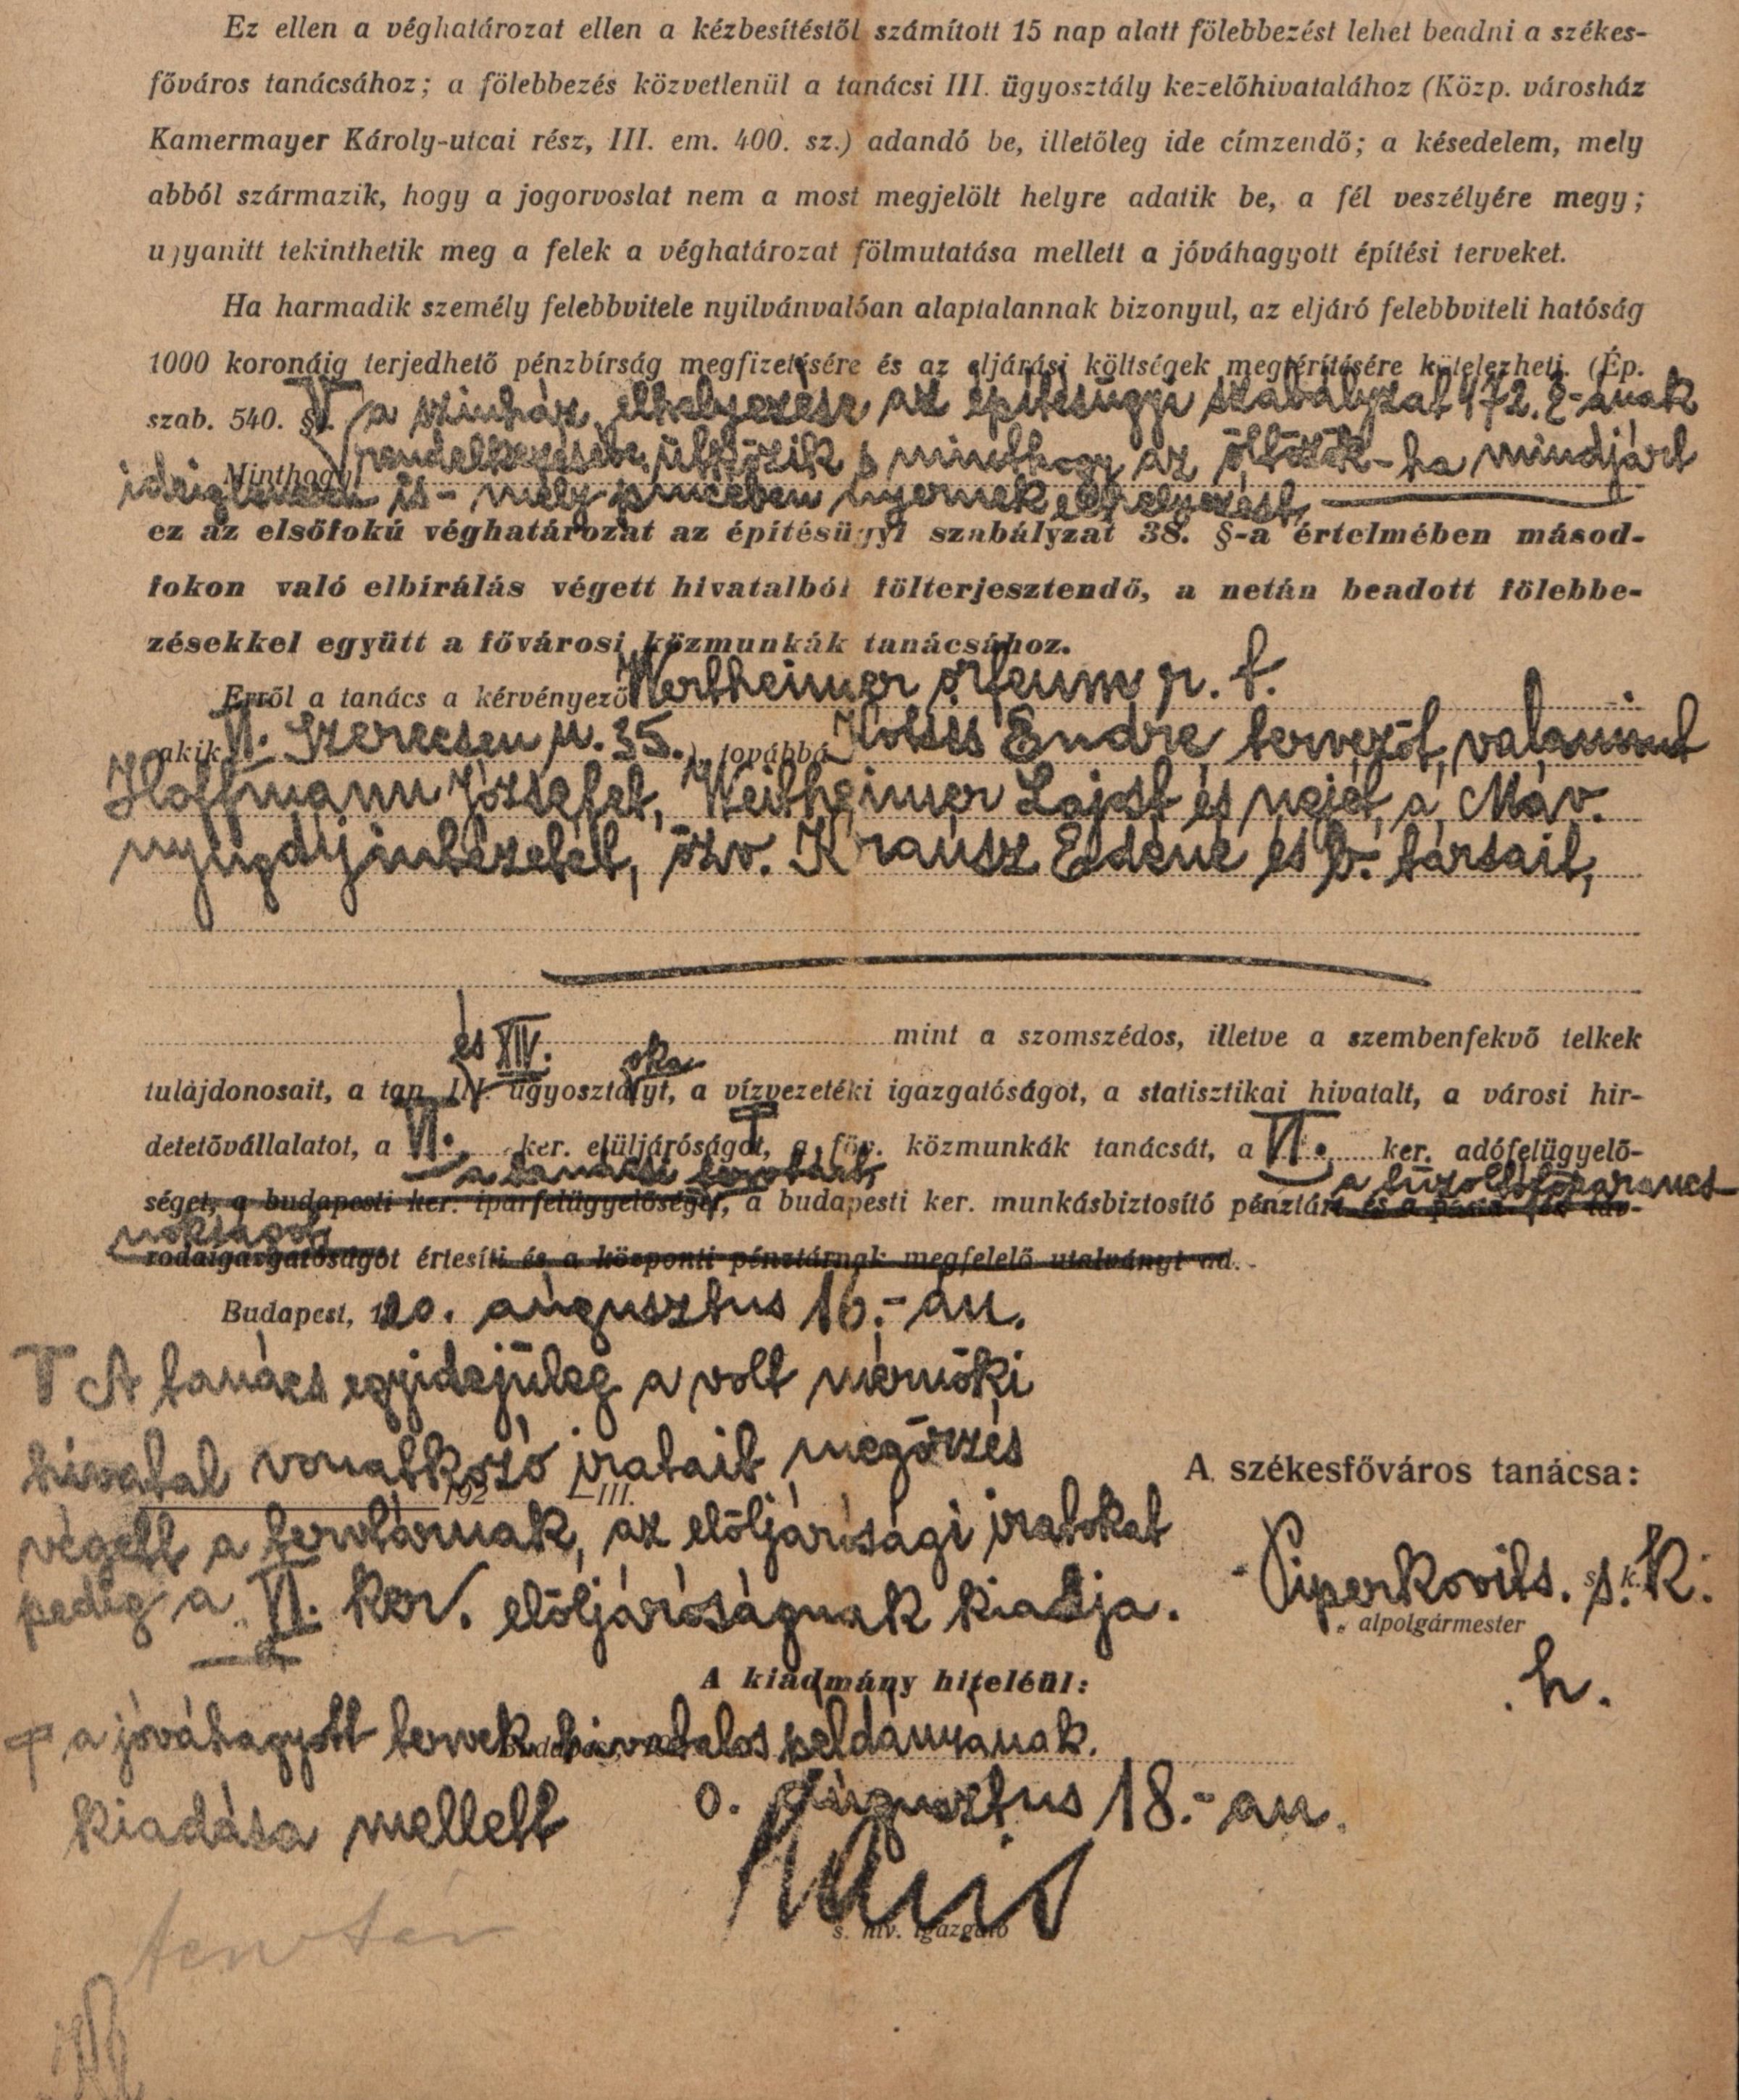 Ez ellen a véghatározat ellen a kézbesítéstől számított 15 nap alatt fölebbezést lehet beadni a székes-
főváros tanácsához; a fölebbezés közvetlenül a tanácsi III. ügyosztály kezelőhivatalához (Közp. városház
Kamermayer Károly-utcai rész, III. em. 400. sz.) adandó be, illetőleg ide címzendő; a késedelem, mely
abból származik, hogy a jogorvoslat nem a most megjelölt helyre adatik be, a fél veszélyére megy;
ugyanitt tekinthetik meg a felek a véghatározat fölmutatása mellett a jóváhagyott építési terveket.
Ha harmadik személy felebbvitele nyilvánvalóan alaptalannak bizonyul, az eljáró felebbviteli hatóság
1000 koronáig terjedhető pénzbírság megfizetésére és az eljárási költségek megtérítésére kötelezheti. (Ép.
szab. 540. §). a szinház elhelyezése az építésügyi szabályzat 472. §-ának
Minthogy rendelkezésébe ütközik s minthogy az öltözők - ha mindjárt
ideiglenesen is - mély pincében nyernek elhelyezést,
ez az elsőfokú véghatározat az építésügyi szabályzat 38. §-a értelmében másod-
fokon való elbírálás végett hivatalból fölterjesztendő, a netán beadott fölebbe-
zésekkel együtt a fővárosi közmunkák tanácsához.
Erről a tanács a kérvényező Wertheimer orfeum r. t.
akik VI. Szerecsen u. 35.), továbbá Endre tervezőt, valamint
Hoffmann Józsefet, Wertheimer Lajost és nejét, a Máv.
nyugdíjintézetét, özv. Krausz Edéné és b. társait,
és XIV. mint a szomszédos, illetve a szembenfekvő telkek
oka
tulajdonosait, a tan. IV. ügyosztályt, a vízvezetéki igazgatóságot, a statisztikai hivatalt, a városi hir-
detetővállalatot, a VI. ker. elüljáróságot, a föv. közmunkák tanácsát, a VI. ker. adófelügyelő-
a tanácsi tervtárt, a tüzoltófőparancs
séget, a budapesti ker. iparfelügyelőséget, a budapesti ker. munkásbiztosító pénztárt és a
nokságot
rodaigazgatóságot értesíti és a központi pénztárnak megfelelő utalványt ad.
Budapest, 1920. augusztus 16.-án.
A tanács egyidejüleg a volt mérnöki
hivatal vonatkozó iratait megőrzés
192 -III.
A székesfőváros tanácsa:
végett a tervtárnak, az elöljárósági iratokat
pedig a VI. ker. elöljáróságnak kiadja.
Piperkovits. s. k.
alpolgármester
h.
A kiadmány hiteléül:
a jóváhagyott tervek hivatalos példányának
kiadása mellett 0. augusztus 18.-án.
s. hiv. igazgató
tervtár